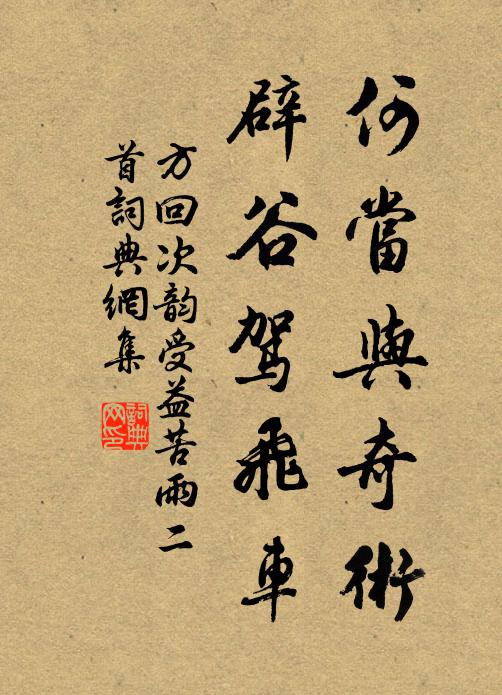 何當與奇術
辟谷駕飛車
方回次韵受益苦雨二
首詞典網集
詞典
网印